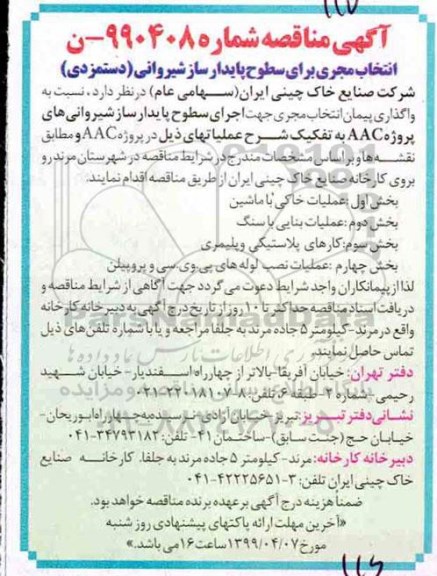 آگهی مناقصه شماره ۹۹۰۴۰۸-ن
انتخاب مجری برای سطوح پایدار ساز شیروانی (دستمزدی)
شرکت صنایع خاک چینی ایران (سهامی عام) در نظر دارد، نسبت به
واگذاری پیمان انتخاب مجری جهت اجرای سطوح پایدار ساز شیروانی های
پروژه AAC به تفکیک شرح عملیاتهای ذیل در پروژه AAC و مطابق
نقشه ها و بر اساس مشخصات مندرج در شرایط مناقصه در شهرستان مرند رو
بروی کارخانه صنایع خاک چینی ایران از طریق مناقصه اقدام نمایند:
بخش اول: عملیات خاکی با ماشین
بخش دوم: عملیات بنایی با سنگ
بخش سوم: کارهای پلاستیکی و پلیمری
بخش چهارم: عملیات نصب لوله های پی.وی.سی و پروپیلن
لذا از پیمانکاران واجد شرایط دعوت می گردد جهت آگاهی از شرایط مناقصه و
دریافت اسناد مناقصه حداکثر تا ۱۰ روز از تاریخ درج آگهی به دبیرخانه کارخانه
واقع در مرند- کیلومتر ۵ جاده مرند به جلفا مراجعه و یا با شماره تلفن های ذیل
تماس حاصل نمایند.
دفتر تهران: خیابان آفریقا- بالاتر از چهارراه اسفندیار- خیابان شهید
رحیمی- شماره ۲- طبقه ۵ تلفن:
نشانی دفتر تبریز: تبریز- خیابان آزادی- نرسیده به چهارراه ابوریحان-
خیابان حج (جنت سابق)- ساختمان ۴۱- تلفن: ۳۴۷۹۳۱۸۲-۰۴۱
دبیرخانه کارخانه: مرند- کیلومتر ۵ جاده مرند به جلفا. کارخانه صنایع
خاک چینی ایران تلفن: ۳-۴۲۲۲۵۶۵۱-۰۴۱
ضمناً هزینه درج آگهی بر عهده برنده مناقصه خواهد بود.
«آخرین مهلت ارائه پاکتهای پیشنهادی روز شنبه
مورخ ۱۳۹۹/۰۴/۰۷ ساعت ۱۶ می باشد.»